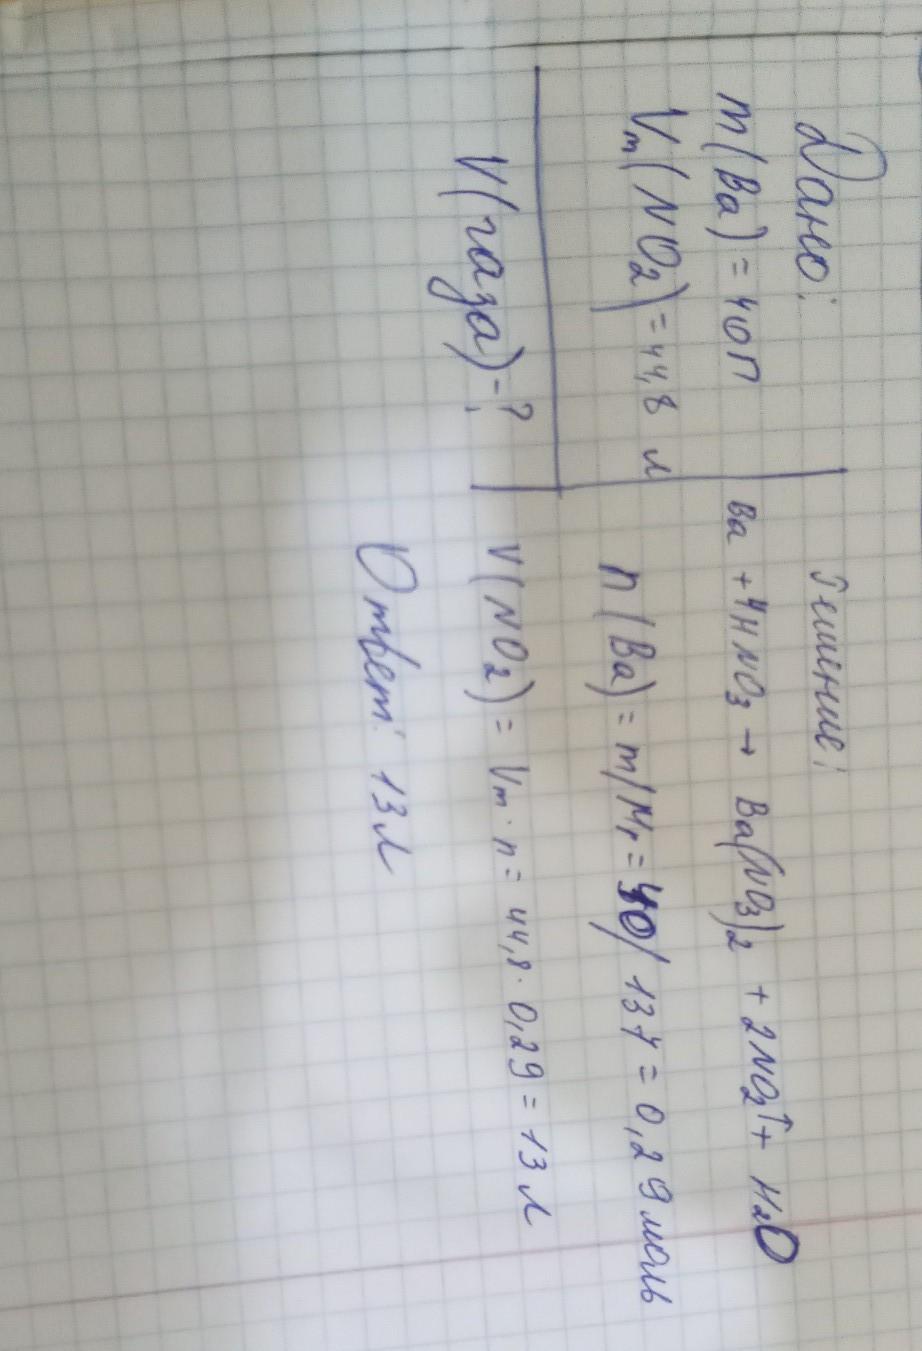 Дано:
m(Ba) = 40 г
Vm(NO2) = 44,8 л
V(газа) - ?
Решение:
Ba + 4HNO3 → Ba(NO3)2 + 2NO2↑ + H2O
n(Ba) = m/Mr = 40/137 = 0,29 моль
V(NO2) = Vm · n = 44,8 · 0,29 = 13 л
Ответ: 13 л